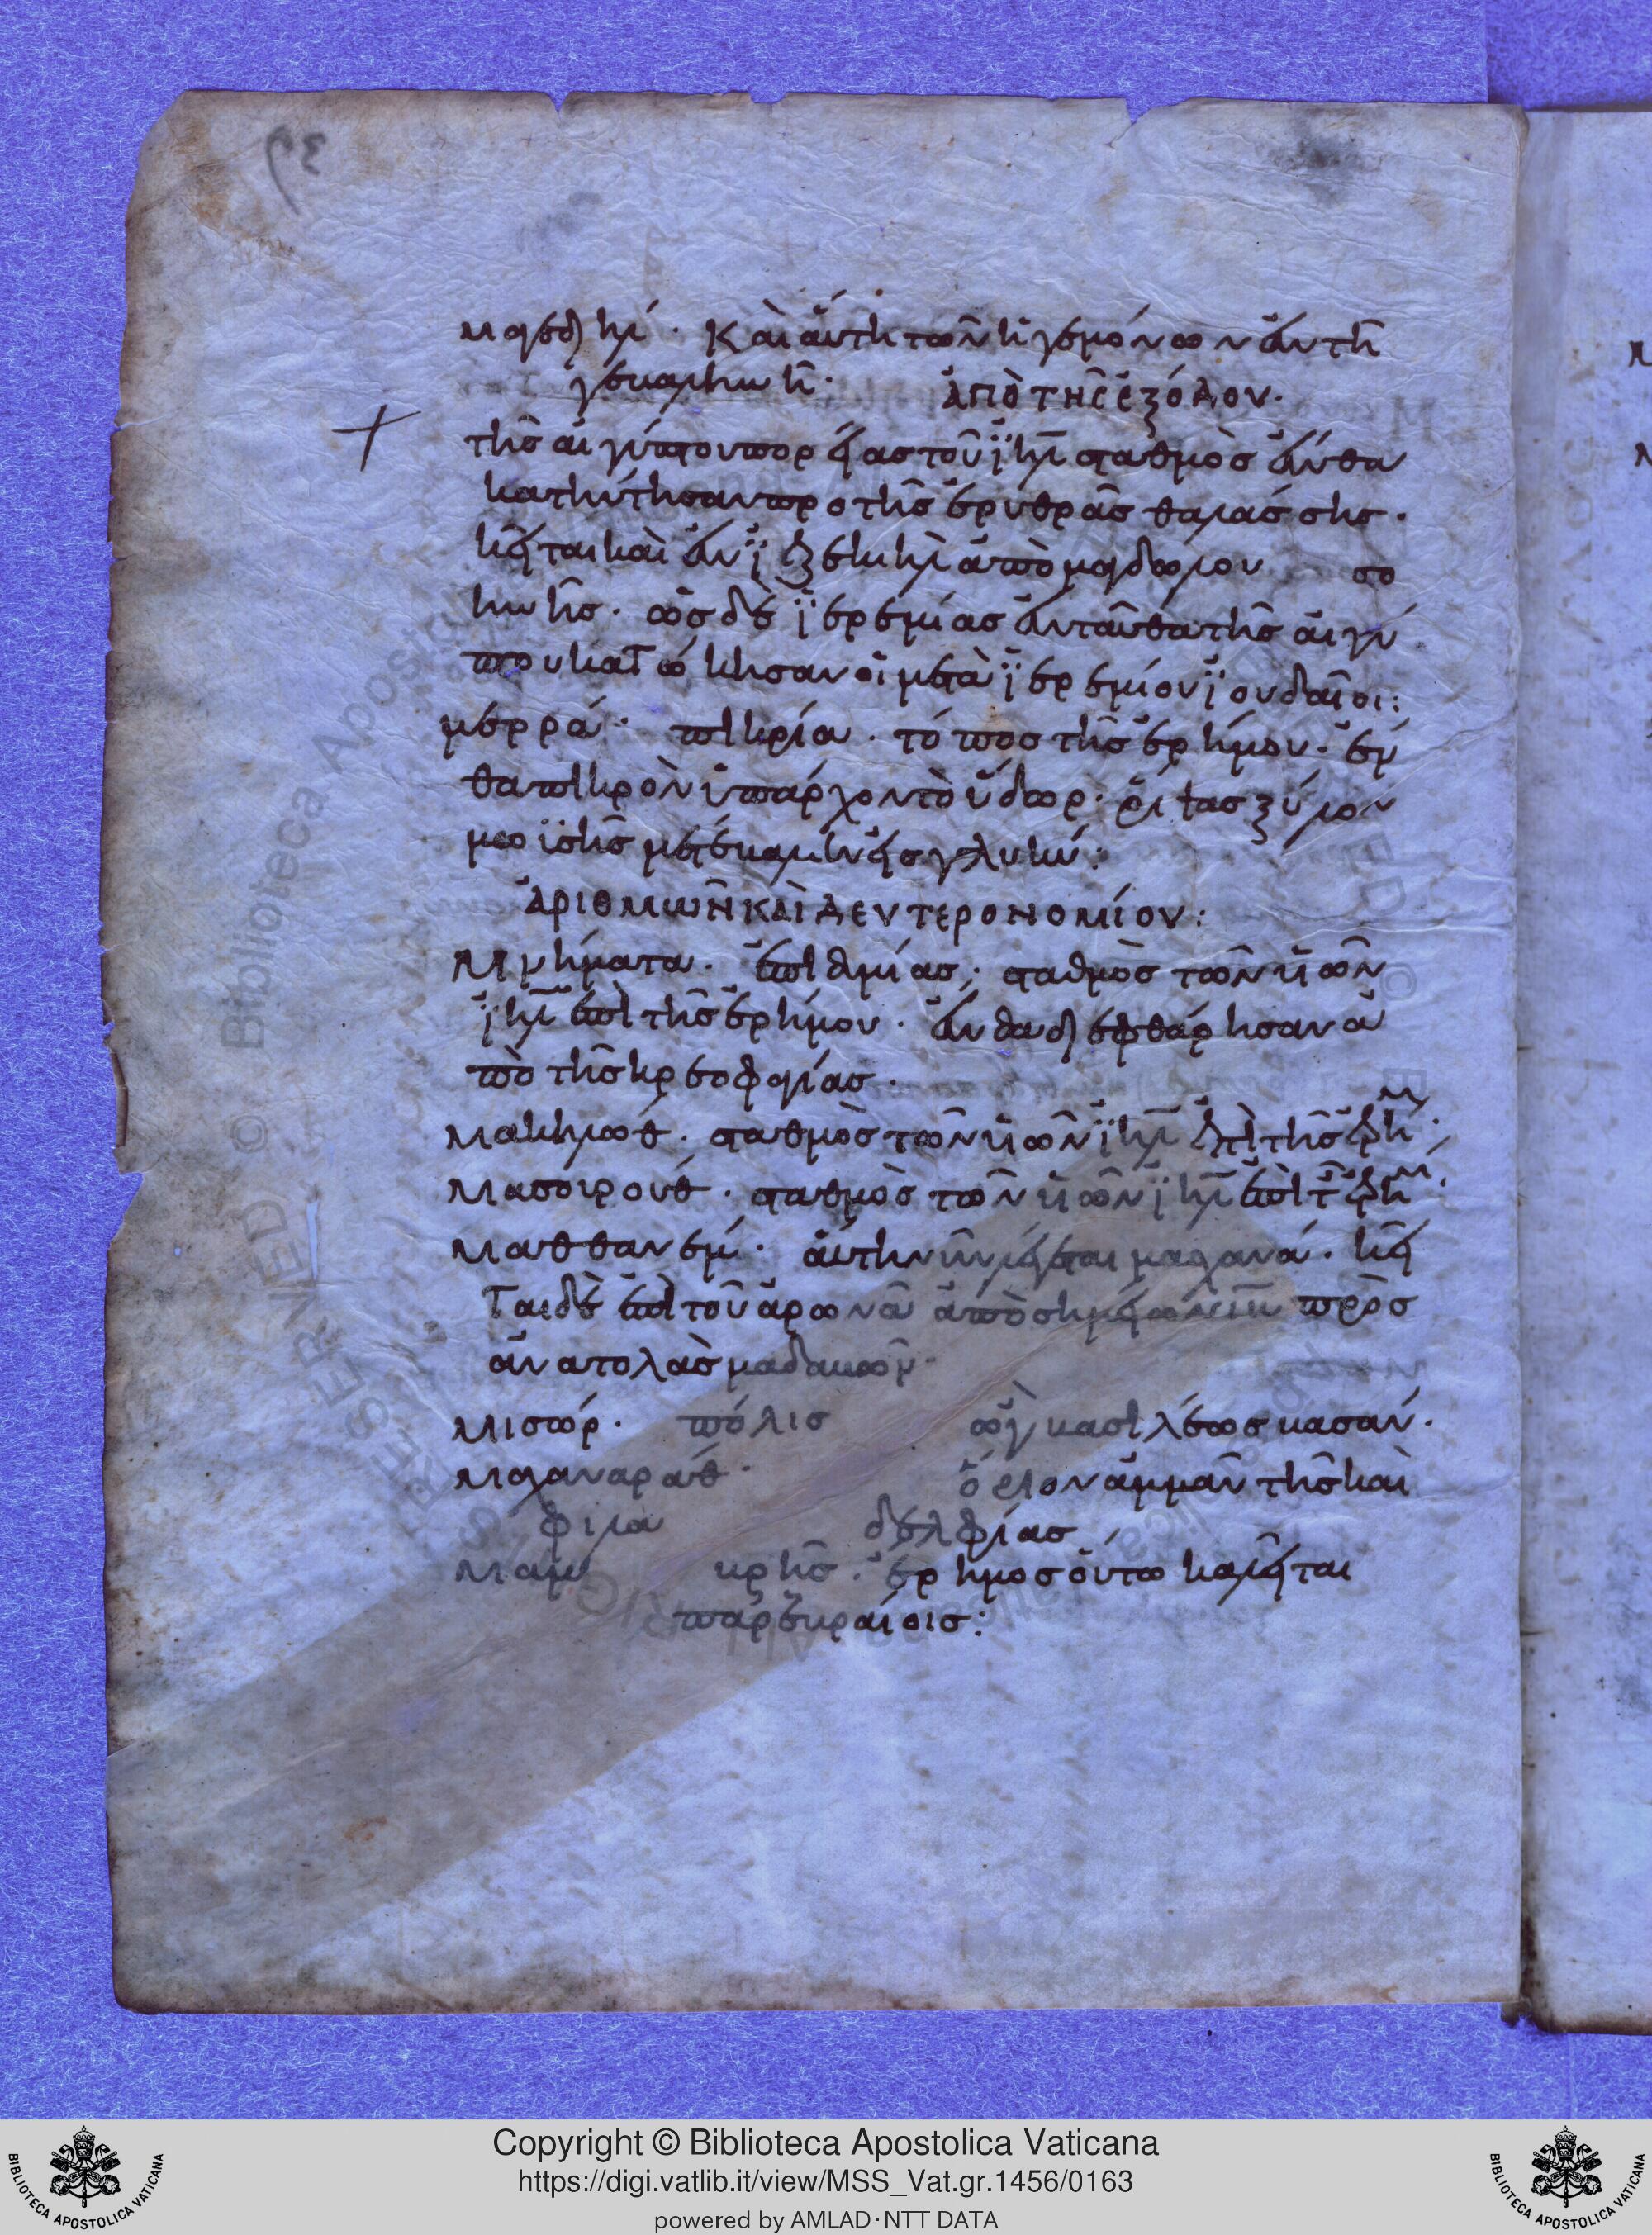 μαγεδιήλ. καὶ αὕτη τῶν ἡγεμόνων ἐν τῇ
γεβαληνῇ. ἀπὸ τῆς ἐξόδου.
τῆς αἰγύπτου πορείας τοῦ ἰηλ σταθμὸς ἔνθα
κατήντησαν πρὸ τῆς ἐρυθρᾶς θαλάσσης.
κεῖται καὶ ἐν ἰεζεκιὴλ ἀπὸ μαγδώλου σο
ήνης. ὡς δὲ ἰερεμίας ἐνταῦθα τῆς αἰγύ
πτου κατώκησαν οἱ μετὰ ἰερεμίου ἰουδαῖοι:
μερρά. πικρία. τόπος τῆς ἐρήμου. ἐν
θα πικρὸν ὑπάρχον τὸ ὕδωρ. ῥίψας ξύλον
μωϊσῆς μετέβαλεν εἰς γλυκύ:
ἀριθμῶν καὶ δευτερονομίου:
Μνήματα. ἐπιθυμίας. σταθμὸς τῶν υἱῶν
ἰηλ ἐπὶ τῆς ἐρήμου. ἔνθα διεφθάρησαν ἀ
πὸ τῆς κρεοφαγίας.
Μακηλώθ. σταθμὸς τῶν υἱῶν ἰηλ ἐπὶ τῆς ἐρήμ.
Μασουρούθ. σταθμὸς τῶν υἱῶν ἰηλ ἐπὶ τ ἐρήμ.
Μαθθανέμ. αὕτη νῦν λέγεται μασχανά. κεῖ
ται δὲ ἐπὶ τοῦ ἀρωνᾶ ἀπὸ σημείων ιβ πρὸς
ἀνατολὰς μαδαβῶν.
Μισώρ. πόλις ὢγ βασιλέως βασάν.
Μαχαναράθ. ὅριον ἀμμὰν τῆς καὶ
φιλα δελφίας
Μάμ βρης. ἔρημος οὕτω καλεῖται
παρ' ἑβραίοις:
Copyright © Biblioteca Apostolica Vaticana
https://digi.vatlib.it/view/MSS_Vat.gr.1456/0163
powered by AMLAD·NTT DATA
BIBLIOTECA APOSTOLICA VATICANA
BIBLIOTECA APOSTOLICA VATICANA